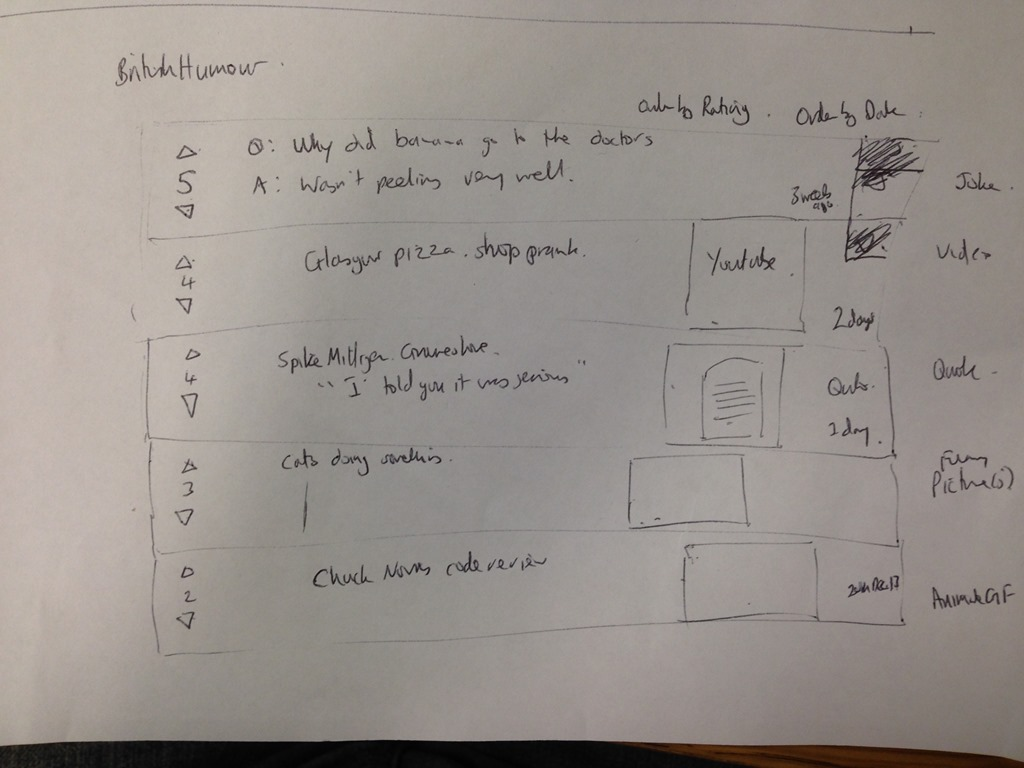 British Humour.
Order by Rating. Order by Date.
Q: Why did banana go to the doctors
5
A: Wasn't peeling very well.
3 weeks ago
Joke.
Glasgow pizza shop prank.
4
Youtube.
2 days
Video
Spike Milligan. Gravestone.
4
"I told you it was serious"
Quote.
1 day.
Quote.
Cats doing something.
3
Funny
Picture(s)
Chuck Norris code review
2
Dec 13
Animated GIF